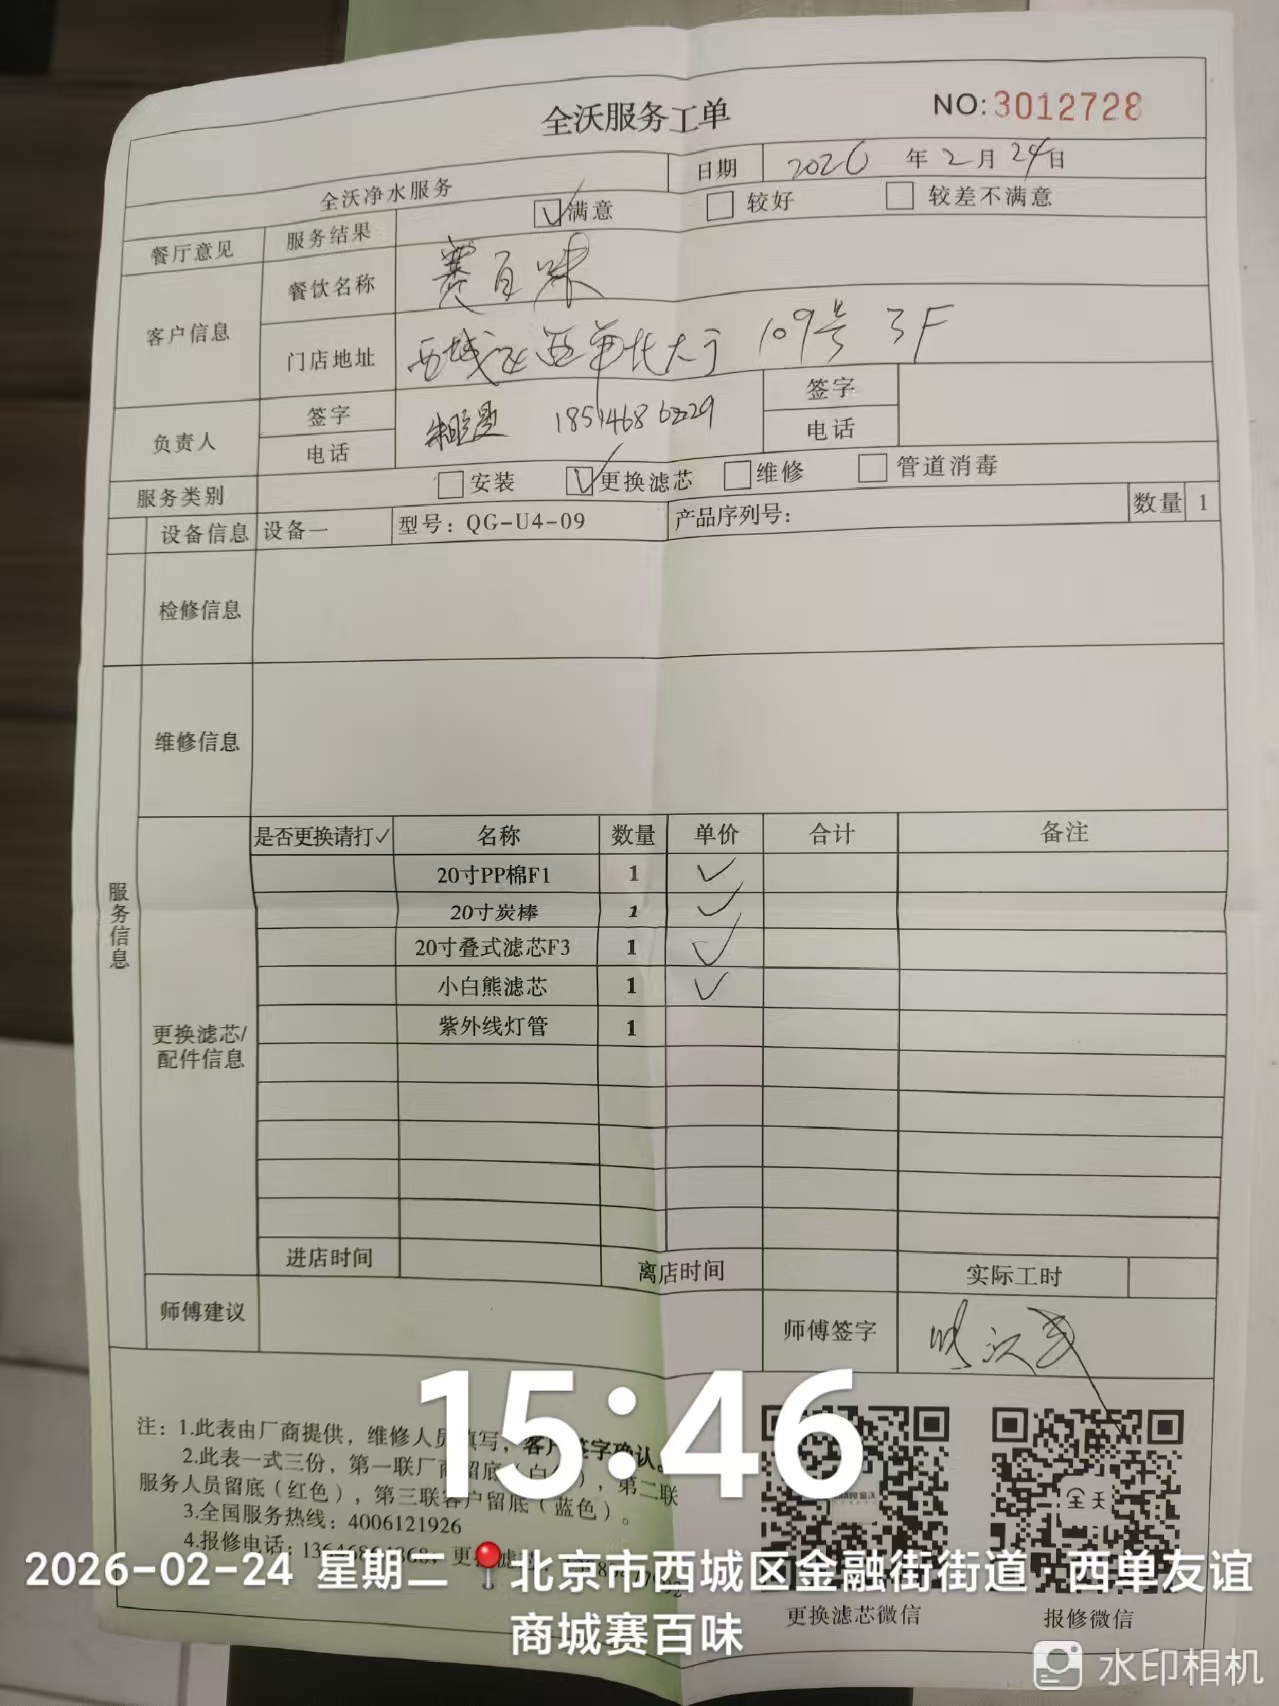 全沃服务工单
NO:3012728
全沃净水服务 日期 2026 年 2 月 24 日
餐厅意见 服务结果 ☑满意 □较好 □较差不满意
客户信息 餐饮名称 赛百味
门店地址 西城区西单北大街 109号 3F
负责人 签字 签字
电话 18514686229 电话
服务类别 □安装 ☑更换滤芯 □维修 □管道消毒
设备信息 设备一 型号：QG-U4-09 产品序列号： 数量 1
检修信息
维修信息
服务信息
更换滤芯/配件信息
是否更换请打✓ 名称 数量 单价 合计 备注
20寸PP棉F1 1 ✓
20寸炭棒 1 ✓
20寸叠式滤芯F3 1 ✓
小白熊滤芯 1 ✓
紫外线灯管 1
进店时间 离店时间 实际工时
师傅建议 师傅签字
注：1.此表由厂商提供，维修人员填写，客户签字确认。
2.此表一式三份，第一联厂商留底（白），第二联
服务人员留底（红色），第三联客户留底（蓝色）。
3.全国服务热线：4006121926
4.报修电话：
更换滤芯微信 报修微信
全天
15:46
2026-02-24 星期二 北京市西城区金融街街道·西单友谊
商城赛百味
水印相机